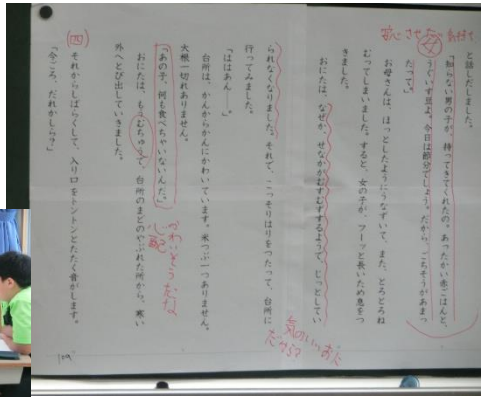 安心させたい気持ち
と話しだしました。
「知らない男の子が、持ってきてくれたの。あったかい赤ごはんと、
うぐいす豆よ。今日は節分でしょう。だから、ごちそうがあまっ
たって。」
お母さんは、ほっとしたようにうなずいて、また、とろとろね
むってしまいました。すると、女の子が、フーッと長いため息をつ
きました。
おにたは、なぜか、せなかがむずむずするようで、じっとしてい
られなくなりました。それで、こっそりはりをつたって、台所に
行ってみました。
「ははあん――。」
台所は、かんからかんにかわいています。米つぶ一つありません。
大根一切れありません。
「あの子、何も食べちゃいないんだ。」
おにたは、もうむちゅうで、台所のまどのやぶれた所から、寒い
外へとび出していきました。
(四)
それからしばらくして、入り口をトントンとたたく音がします。
「今ごろ、だれかしら?」
気のいいおに
だから
かわいそうだな
心配